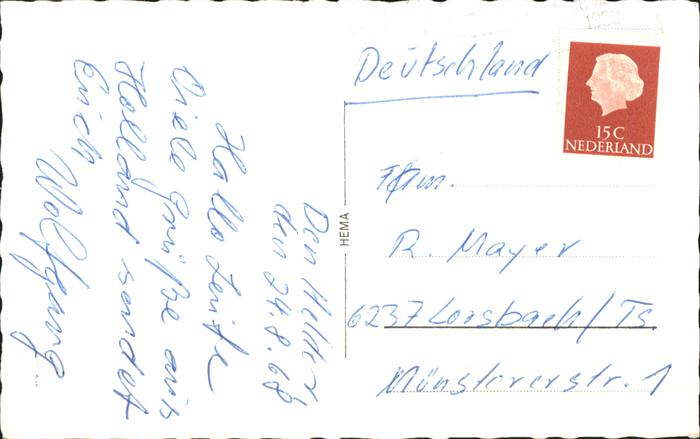 Den Helder
den 24.8.68
Hallo Leute
Viele Grüße aus
Holland sendet
Euch
Wolfgang
HEMA
Deutschland
15 C
NEDERLAND
Fam.
R. Mayer
6237 Lorsbach/Ts
Münstererstr. 1